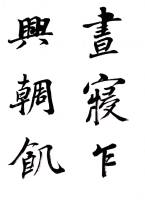 晝寢乍
興朝飢